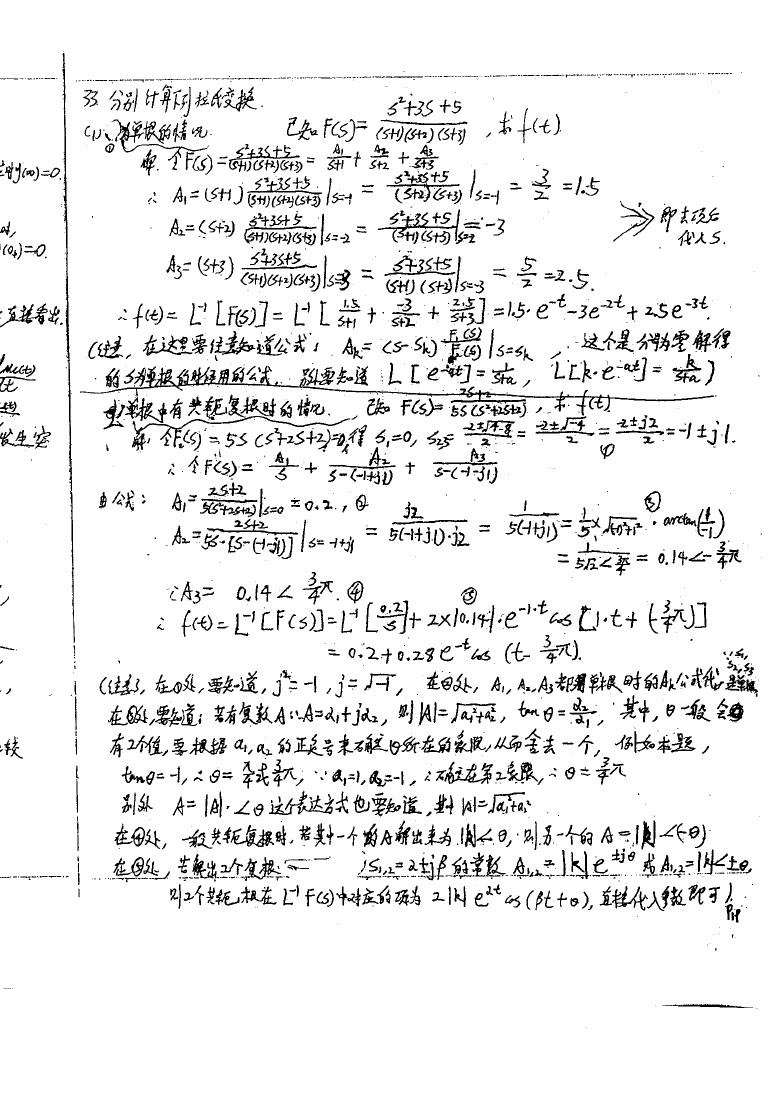 33 分别计算下列拉氏变换.
(1)、①单根的情况. 已知 F(s)= (s²+3s+5)/((s+1)(s+2)(s+3)) , 求 f(t)
解. 令F(s)= (s²+3s+5)/((s+1)(s+2)(s+3)) = A₁/(s+1) + A₂/(s+2) + A₃/(s+3)
∴ A₁=(s+1) (s²+3s+5)/((s+1)(s+2)(s+3)) |s=-1 = (s²+3s+5)/((s+2)(s+3)) |s=-1 = 3/2 = 1.5
A₂=(s+2) (s²+3s+5)/((s+1)(s+2)(s+3)) |s=-2 = (s²+3s+5)/((s+1)(s+3)) |s=2 = -3
即去项后
代入S.
A₃=(s+3) (s²+3s+5)/((s+1)(s+2)(s+3)) |s=-3 = (s²+3s+5)/((s+1)(s+2)) |s=-3 = 5/2 = 2.5.
∴ f(t)= L⁻¹[F(s)] = L⁻¹[ 1.5/(s+1) + -3/(s+2) + 2.5/(s+3) ] = 1.5·e^-t -3e^-2t + 2.5e^-3t.
(注意, 在这里要注意知道公式: Ak= (s-sk) F₁(s)/F₂(s) |s=sk , 这个是分母零解得
的S为单根的时使用的公式. 另外要知道 L[e^-at]= 1/(s+a), L[k·e^-at]= k/(s+a))
单根中有共轭复根时的情况. 已知 F(s)= (2s+2)/(5s(s²+2s+2)), 求 f(t)
解: 令F₂(s)=5s(s²+2s+2)=0,得 s₁=0, s₂,₃= (-2±√(4-8))/2 = (-2±√-4)/2 = (-2±j2)/2 = -1±j1.
∴ 令F(s)= A₁/s + A₂/(s-(-1+j1)) + A₃/(s-(-1-j1))
由公式: A₁= (2s+2)/(5(s²+2s+2)) |s=0 = 0.2, ②
A₂= (2s+2)/(5s·[s-(-1-j1)]) |s=-1+j1 = j2/(5(-1+j1)·j2) = 1/(5(-1+j1)) = 1/5 × √(-1)²+1² · arctan(1/-1)
= 1/(5√2∠¾π) = 0.14∠-¾π
∴A₃= 0.14∠¾π. ④
∴ f(t)= L⁻¹[F(s)] = L⁻¹[0.2/s] + 2×|0.14|·e^-1·t cos[1·t + (-¾π)]
= 0.2+0.28e^-t cos(t-¾π).
(注意, 在①处, 要知道, j²=-1, j=√-1, 在②处, A₁, A₂, A₃都用单根时的Ak公式代, ∵s₁, s₂, s₃是单根
在③处,要知道: 若有复数A∵A=a₁+ja₂, 则|A|=√(a₁²+a₂²), tanθ= a₂/a₁, 其中, θ一般会
有2个值, 要根据a₁,a₂的正负号来确定θ所在的象限, 从而舍去一个, 例如本题,
tanθ=-1, ∴θ= 或¾π, ∵a₁=1, a₂=-1, ∴确定在第2象限, ∴θ=¾π
另外 A=|A|·∠θ这个表达方式也要知道, 其中|A|=√(a₁²+a₂²)
在④处, 一般共轭复根时, 若其中一个的A解出来为|k|∠θ, 则另一个的A=|k|∠(-θ)
在⑤处, 若解出2个复根 s₁,₂=α±jβ的常数 A₁,₂=|k|e^±jθ 或 A₁,₂=|k|∠±θ,
则2个共轭根在L⁻¹F(s)中对应的项为 2|k|e^αt cos(βt+θ), 直接代入参数即可!